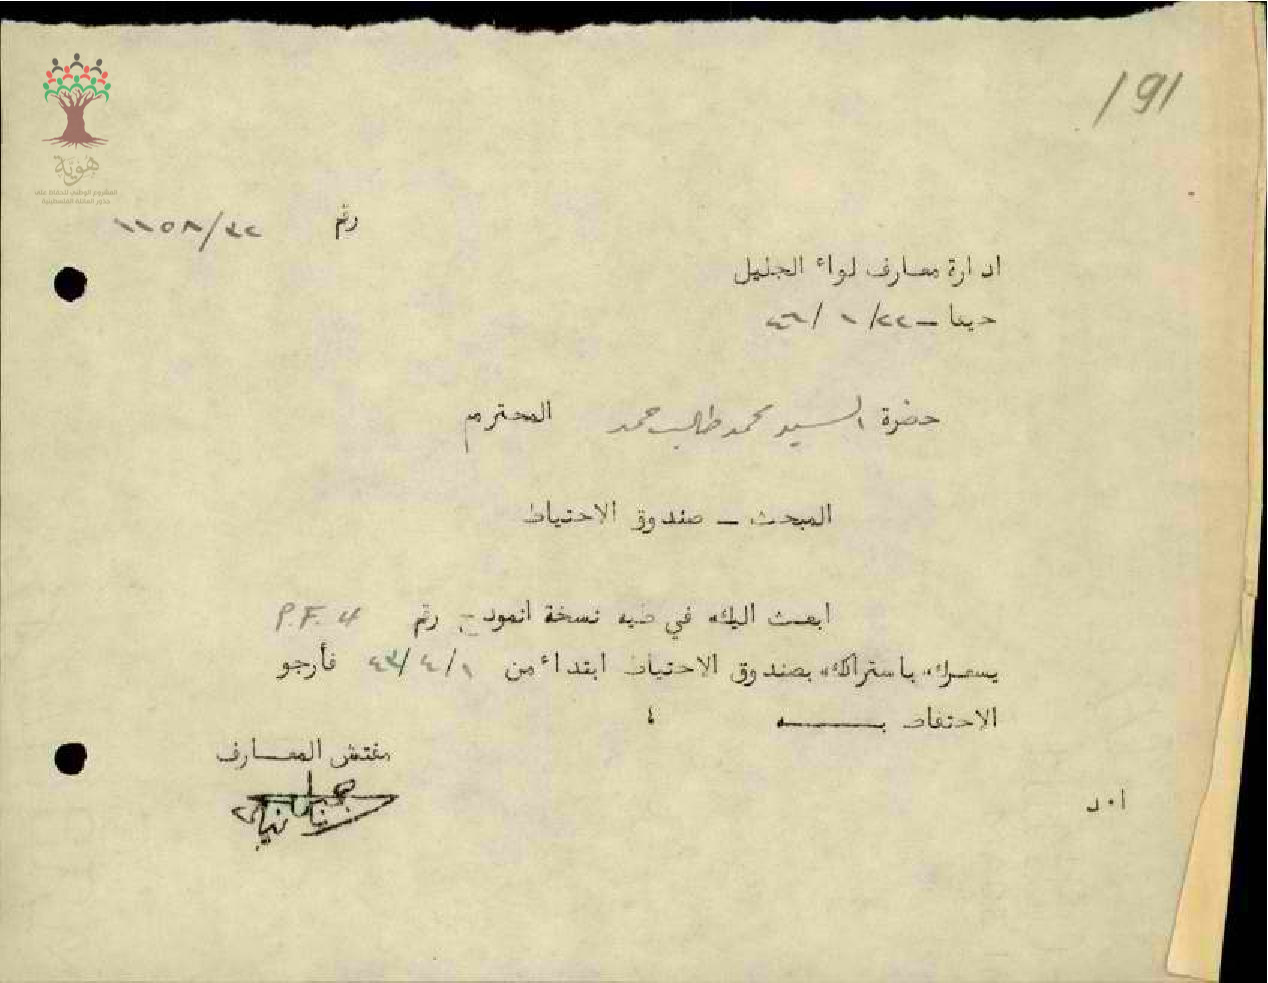 191
هوية
المشروع الوطني للحفاظ على
جذور العائلة الفلسطينية
رقم ٣٢/١١٥٨
ادارة معارف لواء الجليل
حيفا - ٢٢/ ١ /٤٦
حضرة السيد محمد طالب حمد المحترم
المبحث - صندوق الاحتياط
ابعث اليك في طيه نسخة انموذج رقم P.F. 4
يسعرك باستراكك بصندوق الاحتياط ابتداء من ١/ ٤ /٤٣ فأرجو
الاحتفاظ بـــــه ؛
مفتش المعــارف
ا٠د